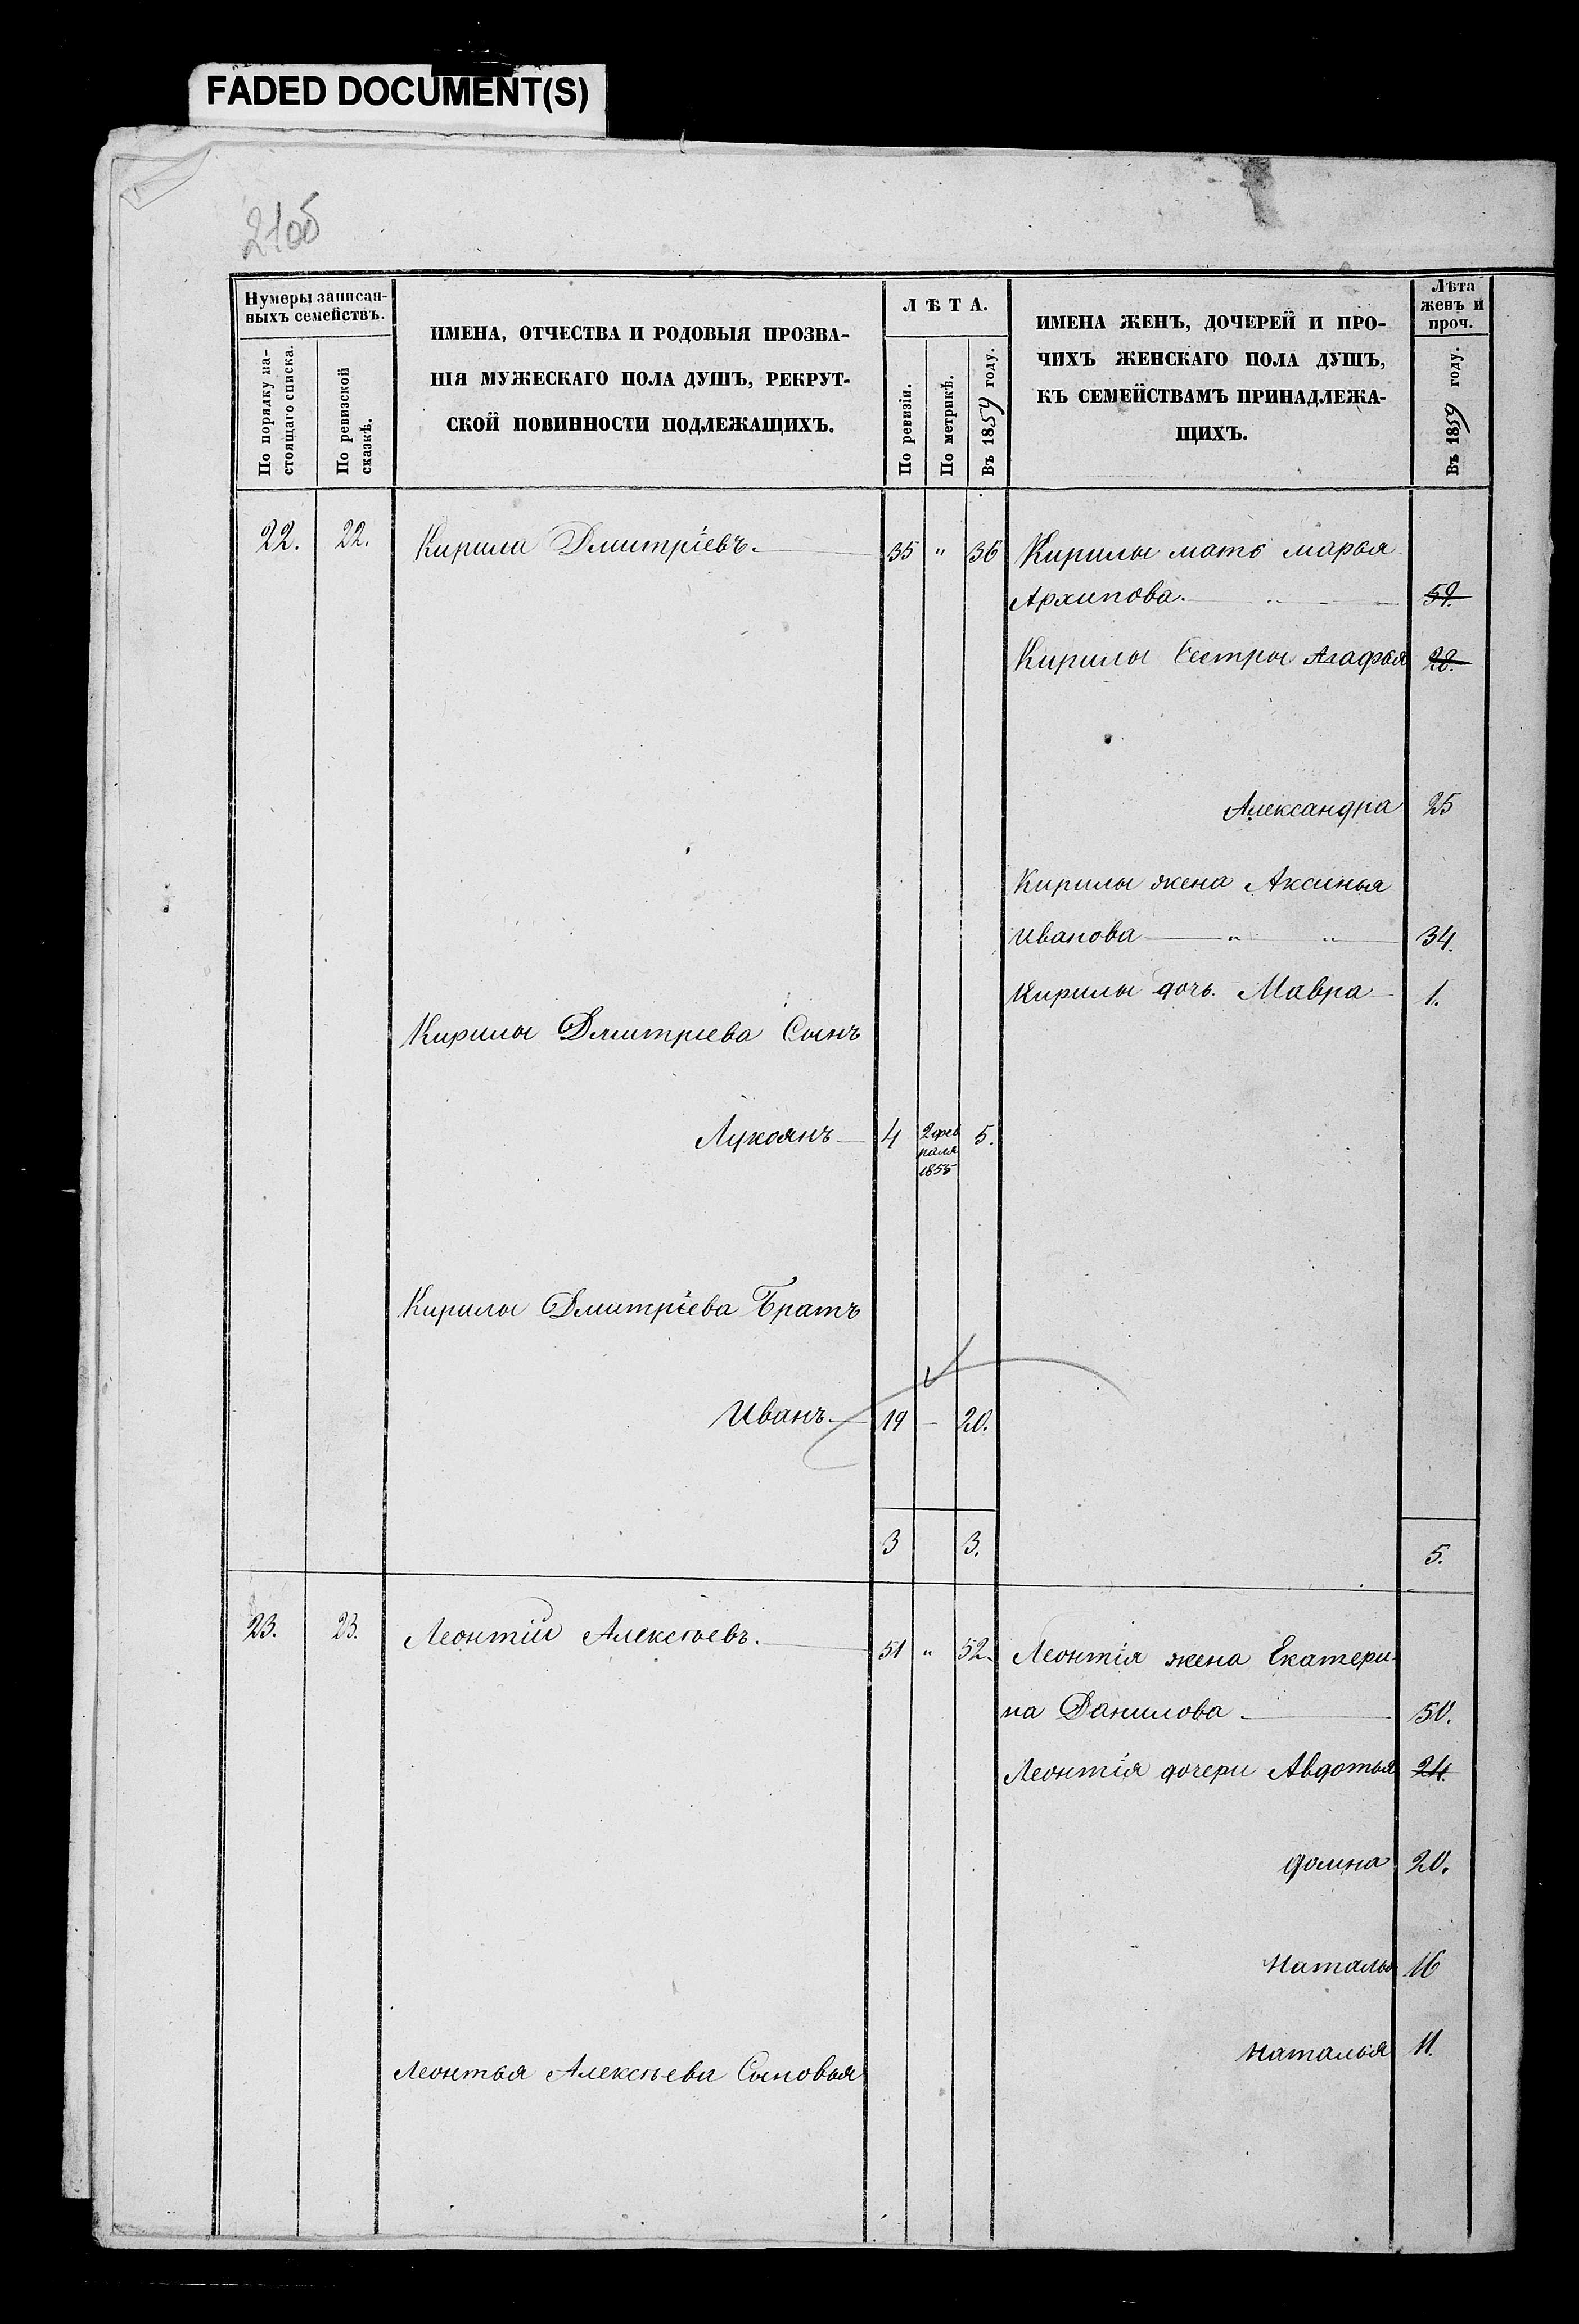 FADED DOCUMENT(S)
21об
Нумеры записан-
ныхъ семействъ.
По порядку на-
стоящаго списка.
По ревизской
сказкѣ.
ИМЕНА, ОТЧЕСТВА И РОДОВЫЯ ПРОЗВА-
НІЯ МУЖЕСКАГО ПОЛА ДУШЪ, РЕКРУТ-
СКОЙ ПОВИННОСТИ ПОДЛЕЖАЩИХЪ.
ЛѢТА.
По ревизіи.
По метрикѣ.
Въ 1859 году.
ИМЕНА ЖЕНЪ, ДОЧЕРЕЙ И ПРО-
ЧИХЪ ЖЕНСКАГО ПОЛА ДУШЪ,
КЪ СЕМЕЙСТВАМЪ ПРИНАДЛЕЖА-
ЩИХЪ.
Лѣта
женъ и
проч.
Въ 1859 году.
22. 22. Кирила Дмитріевъ. 35 " 36 Кирилы мать марья
Архипова. 59.
Кирилы Сестры Агафья 28.
Александра 25
Кирилы жена Аксинья
Иванова " " 34.
Кирилы дочь. Мавра 1.
Кирилы Дмитріева Сынъ
Лукоянъ 4 2 фев 5.
раля
1855
Кирилы Дмитріева Братъ
Иванъ 19 - 20.
3 3. 5.
23. 23. Леонтій Алексѣевъ. 51 " 52. Леонтія жена Екатери-
на Данилова 50.
Леонтія дочери Авдотья 24.
домна 20.
Наталья 16
Наталья 11.
Леонтья Алексѣева Сыновья